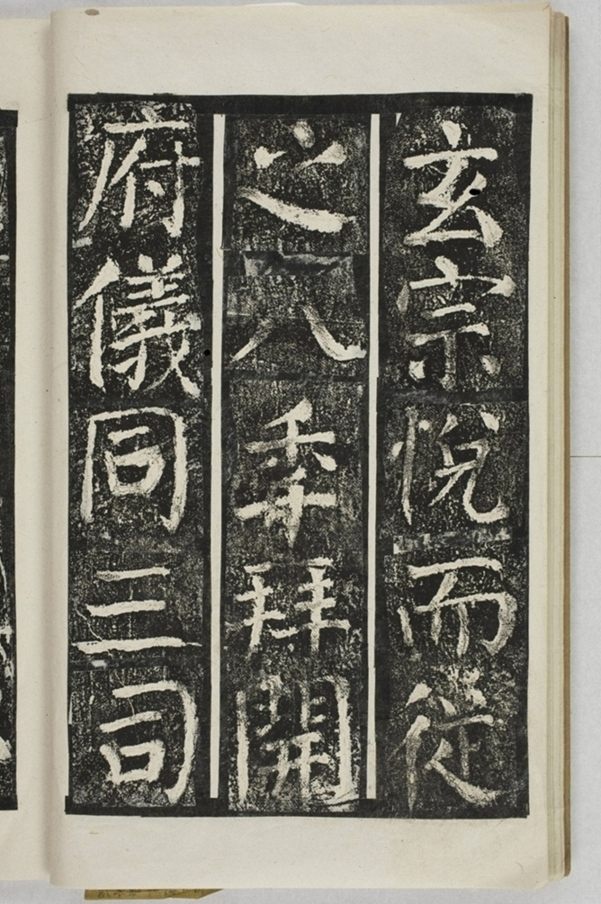 玄宗悅而從
之八年拜開
府儀同三司